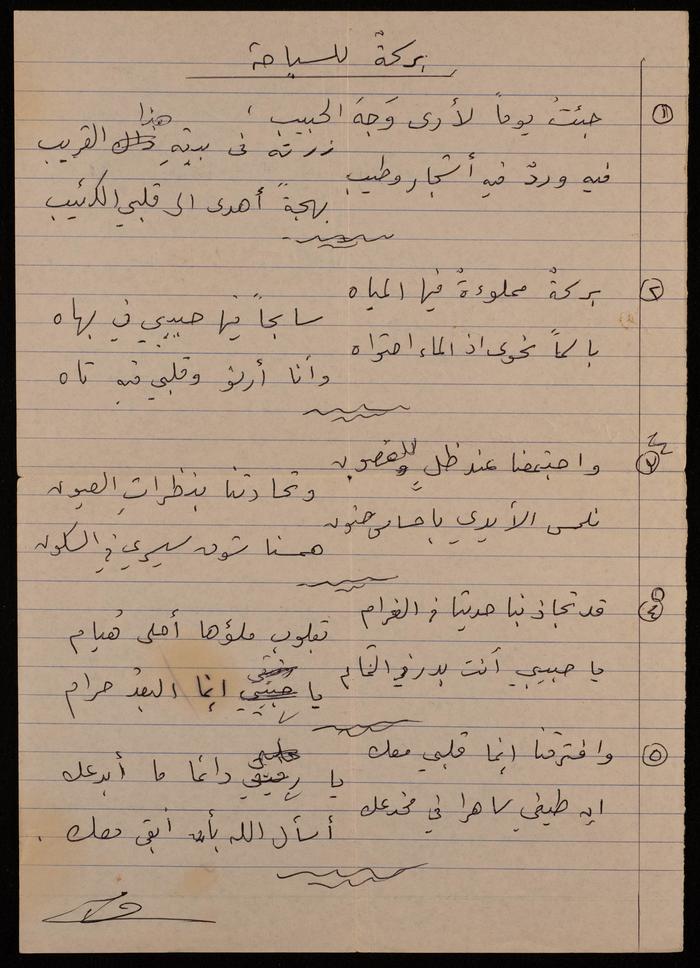 بركةٌ للسباحة
① جئتُ يوماً لأرى وَجهَ الحبيب ؛
زرته فى بيتهِ هذا القريب
فيه وردٌ فيه أشجار وطيب
بهجةً أهدى الى قلبي الكئيب
② بركةٌ مملوءةٌ فيها المياه
سابحاً فيها حبيبي في بهاه
باسماً نحوى اذ الماء احتواه
وأنا أرنو وقلبي فيه تاه
③ واجتمعنا عند ظلٍ للغصون
وتحادثنا بنظراتِ العيون
نلمس الأيدي باحساس حنون
همسنا شوق سيري في السكون
④ قد تجاذبنا حديثا في الغرام
بقلوب ملؤها أحلى هُيام
يا حبيبي أنت بدر في التمام
يا إنما البعدُ حرام
⑤ وافترقنا إنما قلبي معك
يا دائما ما أبدعك
إن طيفي ساهرا في مخدعك
أسأل الله بأن أبقى معك .